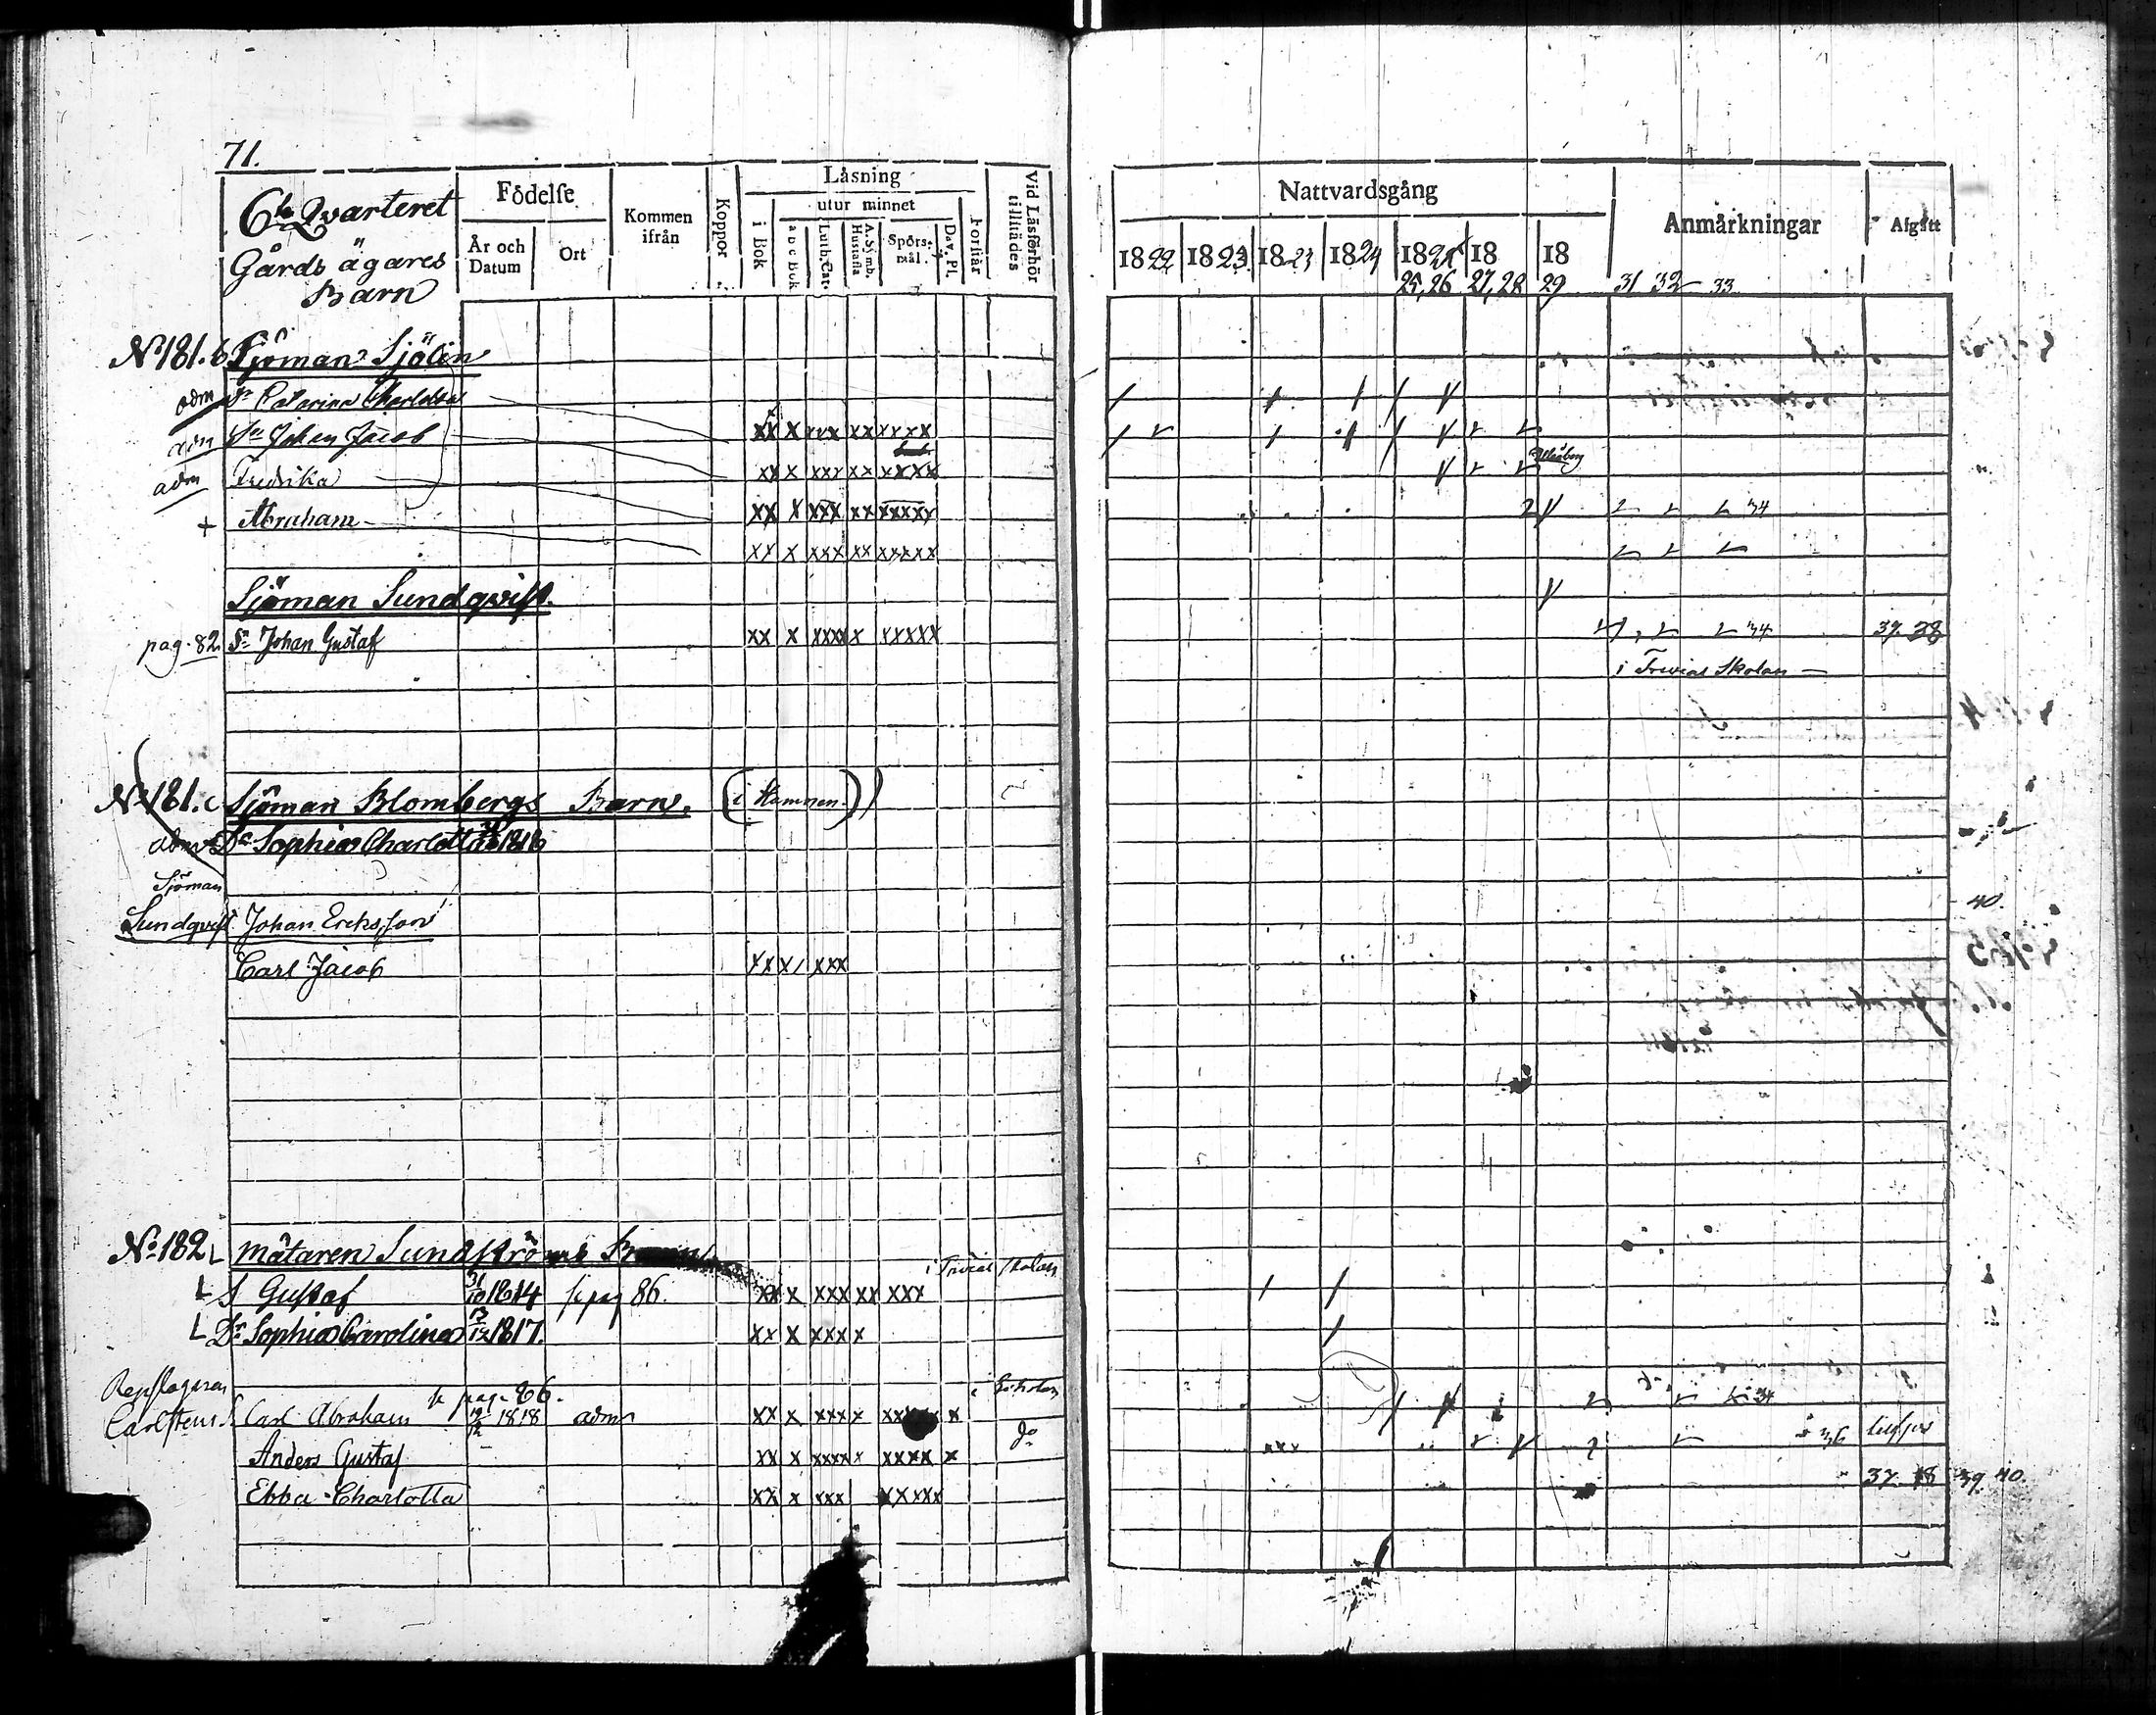 71.
6te Qvarteret
Gårds ägares
Barn
Födelse
År och Datum
Ort
Kommen ifrån
Koppor
Läsning
utur minnet
i Bok
a b c Bok
Luth. Cat.
A. Symb. Hustafla
Spörs-mål.
Dav. Ps.
Förstår
Vid Läsförhör tillstädes
Nattvardsgång
1822 1823 1823 1824 182 18 18
25, 26 27, 28 29 31 32 33
Anmärkningar
Afgått
No 181. b Sjöman Sjölin
adm Catarina Charlotta
adm Sn Johan Jacob xx x xxx xx xxxx
adm Fredrika xx x xxx xx xxxx
+ Abraham xx x xxx xx xxxxx 34
xx x xxx xx xxxxx
Sjöman Sundqvist.
pag. 82 Sn Johan Gustaf xx x xxxx xxxxx 34 37. 38
i Trivial Skolan
No 181. c Sjöman Blombergs Barn. (i Hamnen.)
adm Dr Sophia Charlotta 1818
Sjöman
Sundqvist Johan Ericksson 40.
Carl Jacob xx x xxx
No 182 mätaren Sundströms
i Trivial skolan
S Gustaf 31/10 1814 pag 86. xx x xxx xx xxx
Dr Sophia Carolina 13/12 1817. xx x xxxx
Repslagaren pag. 86. i Scholan
Carlstens S. Carl Abraham 19/12 1818 adm xx x xxx x 34
Anders Gustaf xx x xxxxx xxxx x do 36
Ebba Charlotta xx x xxx xxxxx 37. 38 39. 40.